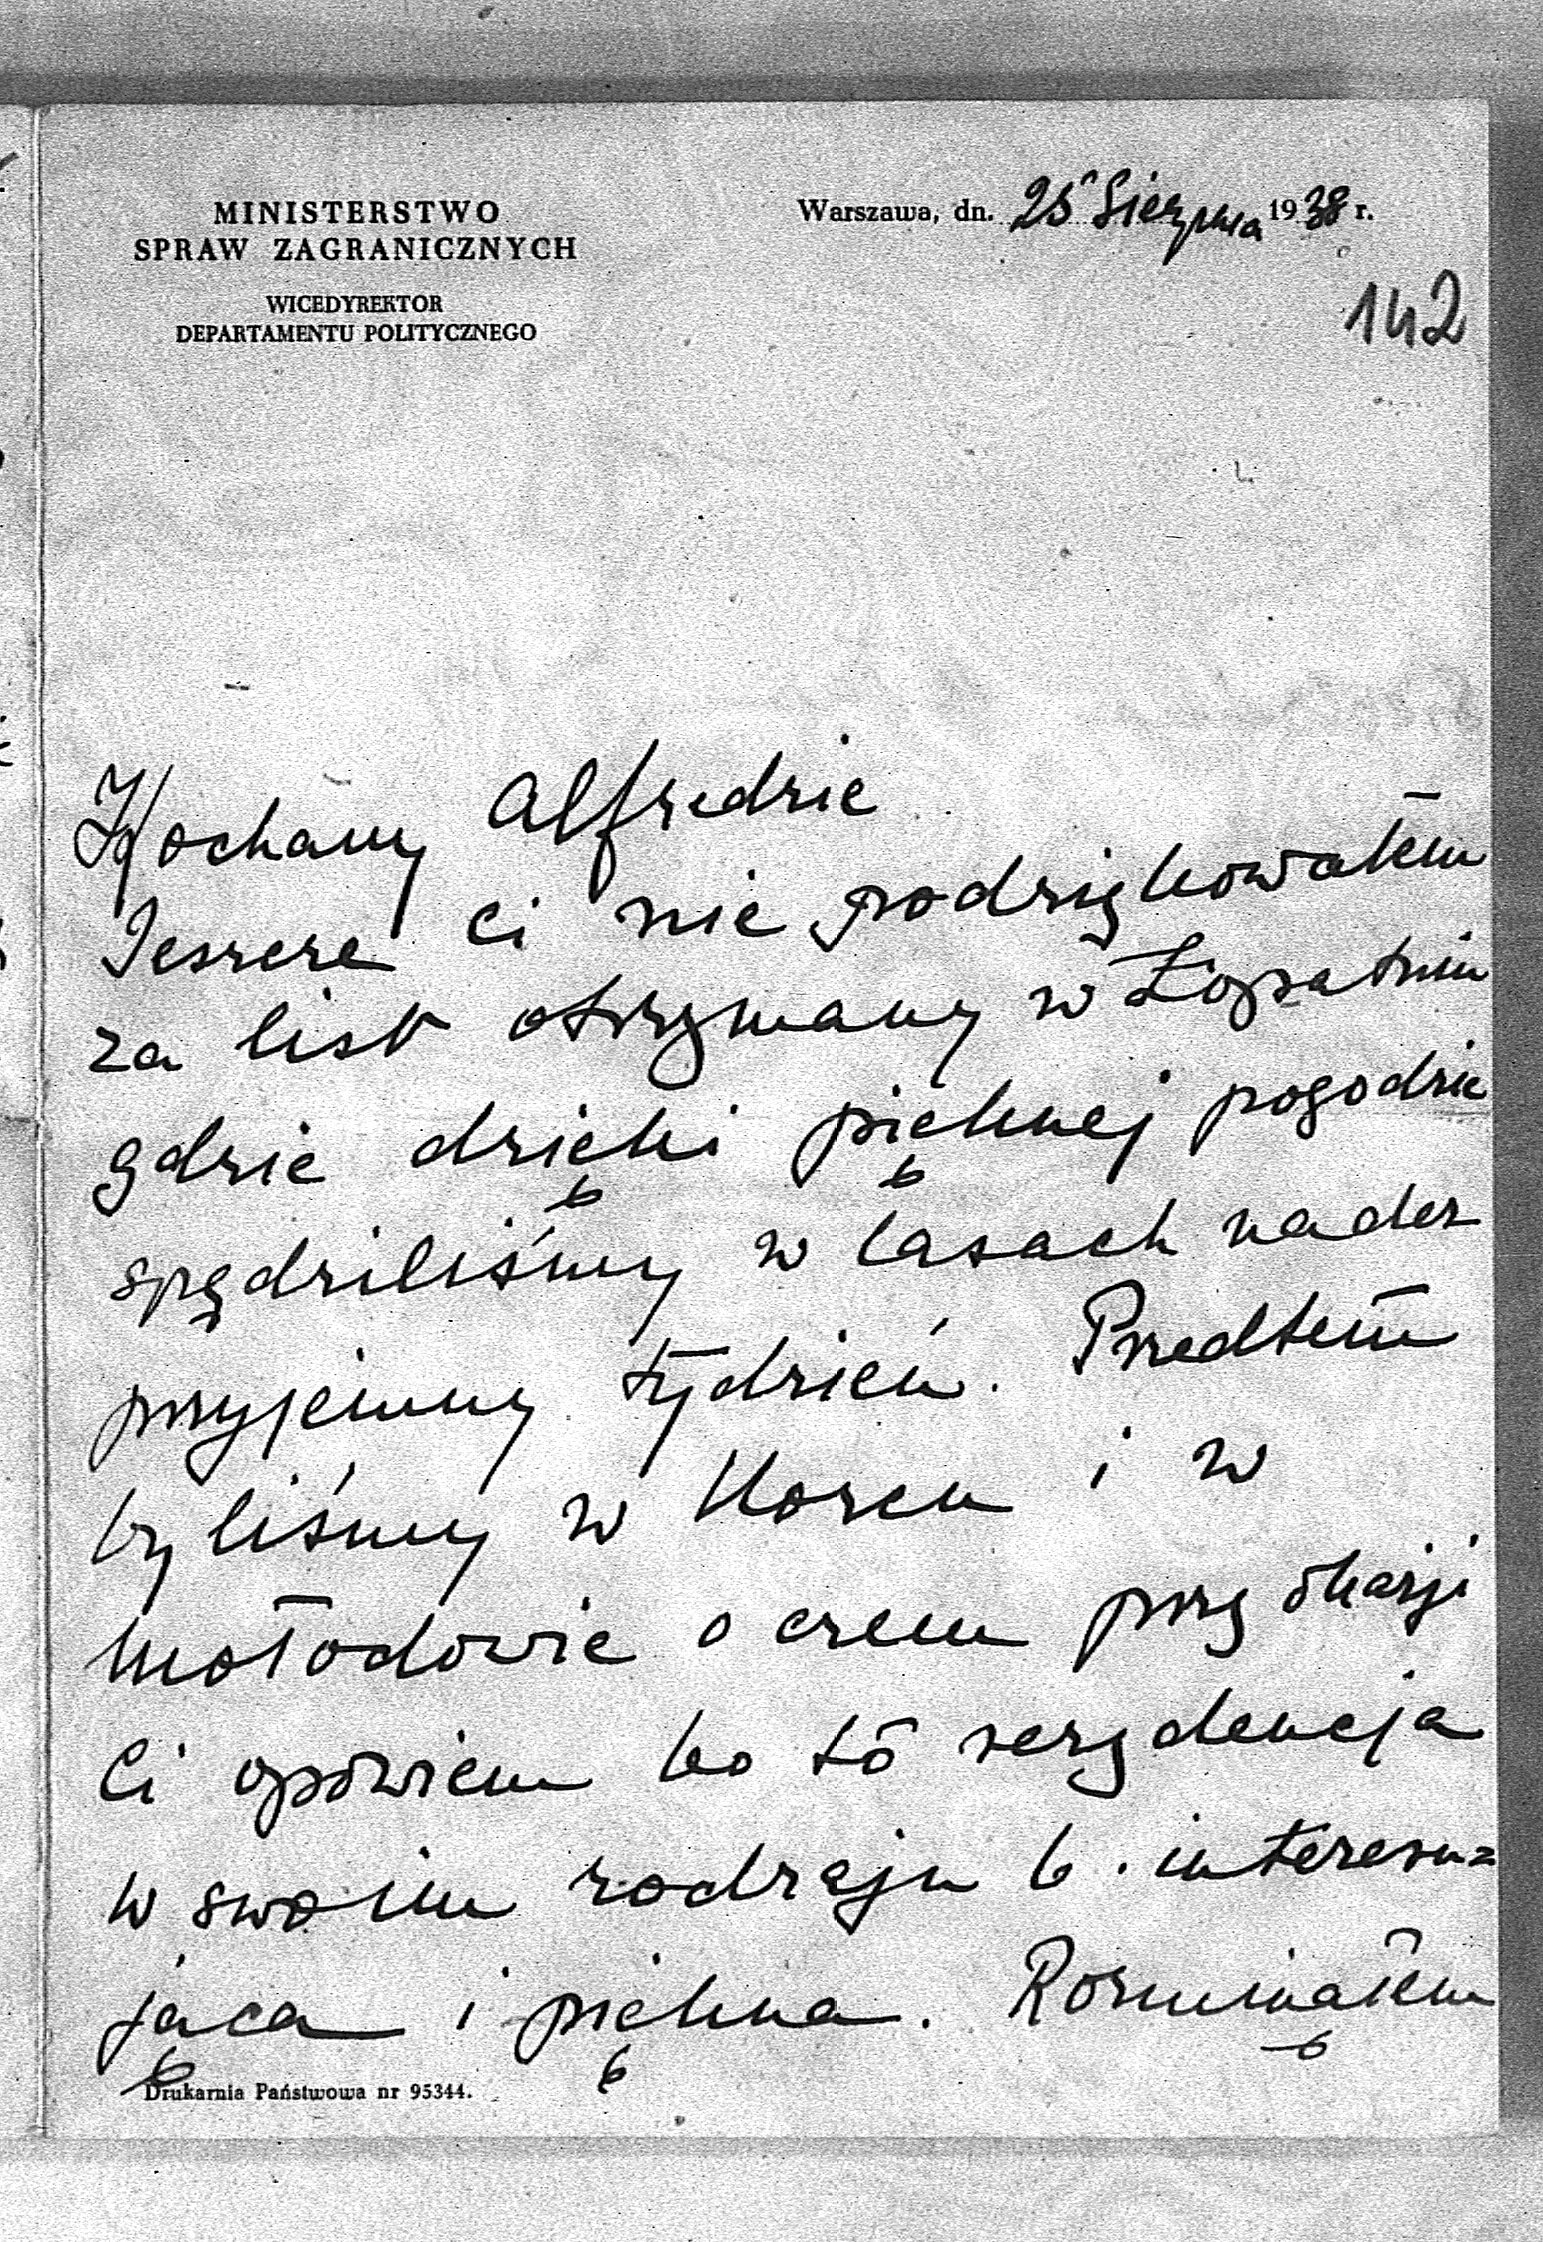 MINISTERSTWO
SPRAW ZAGRANICZNYCH
WICEDYREKTOR
DEPARTAMENTU POLITYCZNEGO
Warszawa, dn. 25 Sierpnia 1938 r.
142
Kochany Alfredzie
Jeszcze Ci nie podziękowałem
za list otrzymany w Łopatnie
gdzie dzięki pięknej pogodzie
spędziliśmy w lasach nader
przyjemny tydzień. Przedtem
byliśmy w Korcu i w
Mołodowie o czem przy okazji
Ci opowiem bo to rezydencja
w swoim rodzaju b. interesu=
jąca i piękna. Rozmawiałem
Drukarnia Państwowa nr 95344.